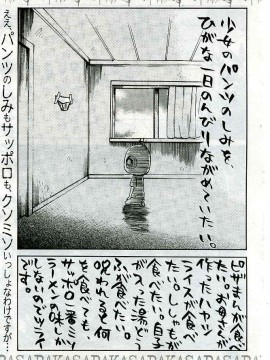 少女のパンツのしみを、
ひがな一日のんびりながめていたい。
ピザまんが食べ
たい。お母さんが
作ったハヤシ
ライスが食べ
たい。ししゃもが
食べたい。白子
が入った湯どう
ふが食べたい。
呪われると、何
を食べても
サッポロ一番ミソ
ラーメンの味しか
しないのでツライ
です。
ええ、パンツのしみもサッポロも、クソミソいっしょなわけですが…